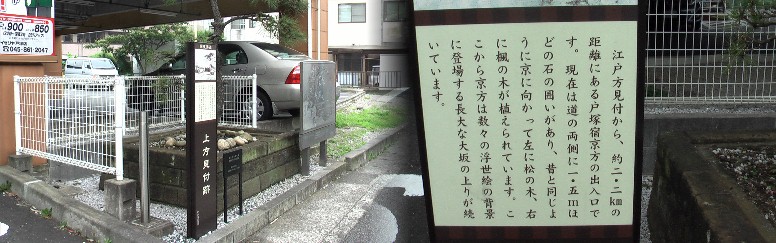 900
850
045-861-2041
上方見付跡
江戸方見付から、約二・二kmの
距離にある戸塚宿京方の出入口で
す。現在は道の両側に一・五mほ
どの石の囲いがあり、昔と同じよ
うに京に向かって左に松の木、右
に楓の木が植えられています。こ
こから京方は数々の浮世絵の背景
に登場する長大な大坂の上りが続
いています。